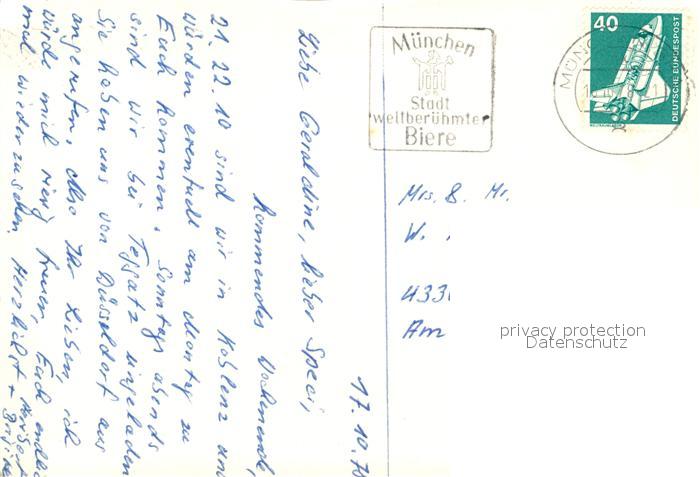 17.10.78
Liebe Geraldine, lieber Speci,
kommendes Wochenende,
21. 22.10 sind wir in Koblenz und
würden eventuell am Montag zu
Euch kommen. Sonntag abends
sind wir bei Tessatz eingeladen
Sie haben uns von Düsseldorf aus
angerufen. Also Ihr Lieben, ich
würde mich riesig freuen, Euch endlich
mal wiederzusehen. Herzlichst
München
Stadt
weltberühmter
Biere
MÜNC
40
DEUTSCHE BUNDESPOST
Mrs. & Mr.
W.
433
Am
privacy protection
Datenschutz